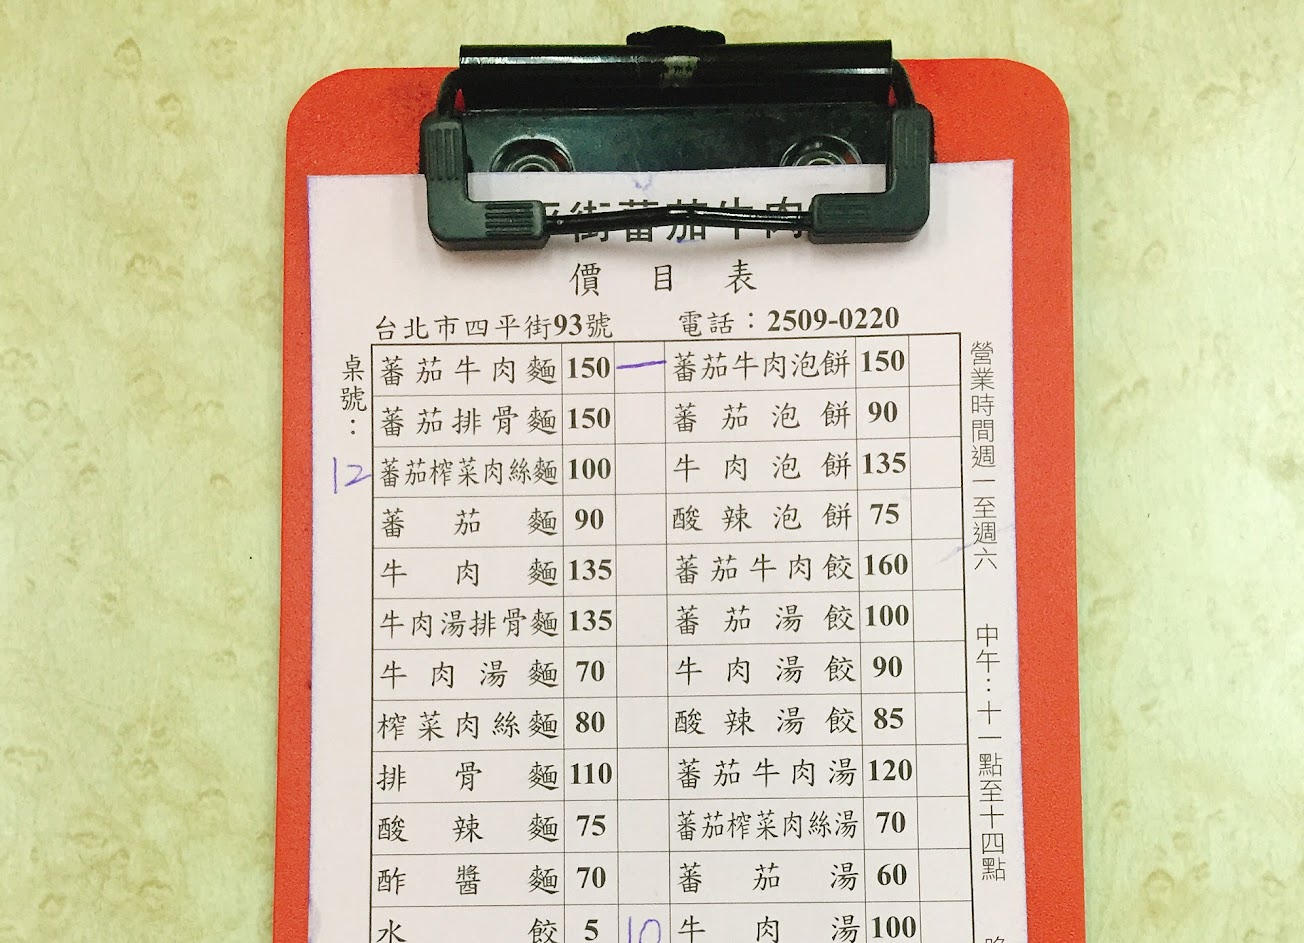 平街蕃茄牛肉
價目表
台北市四平街93號 電話：2509-0220
桌號：
12
蕃茄牛肉麵 150 一 蕃茄牛肉泡餅 150
蕃茄排骨麵 150 蕃茄泡餅 90
蕃茄榨菜肉絲麵 100 牛肉泡餅 135
蕃茄麵 90 酸辣泡餅 75
牛肉麵 135 蕃茄牛肉餃 160
牛肉湯排骨麵 135 蕃茄湯餃 100
牛肉湯麵 70 牛肉湯餃 90
榨菜肉絲麵 80 酸辣湯餃 85
排骨麵 110 蕃茄牛肉湯 120
酸辣麵 75 蕃茄榨菜肉絲湯 70
酢醬麵 70 蕃茄湯 60
水餃 5 10 牛肉湯 100
營業時間週一至週六 中午：十一點至十四點